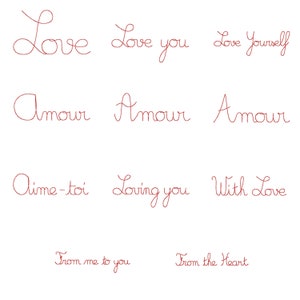 Love Love you Love Yourself
amour Amour Amour
Aime-toi Loving you With Love
From me to you From the Heart